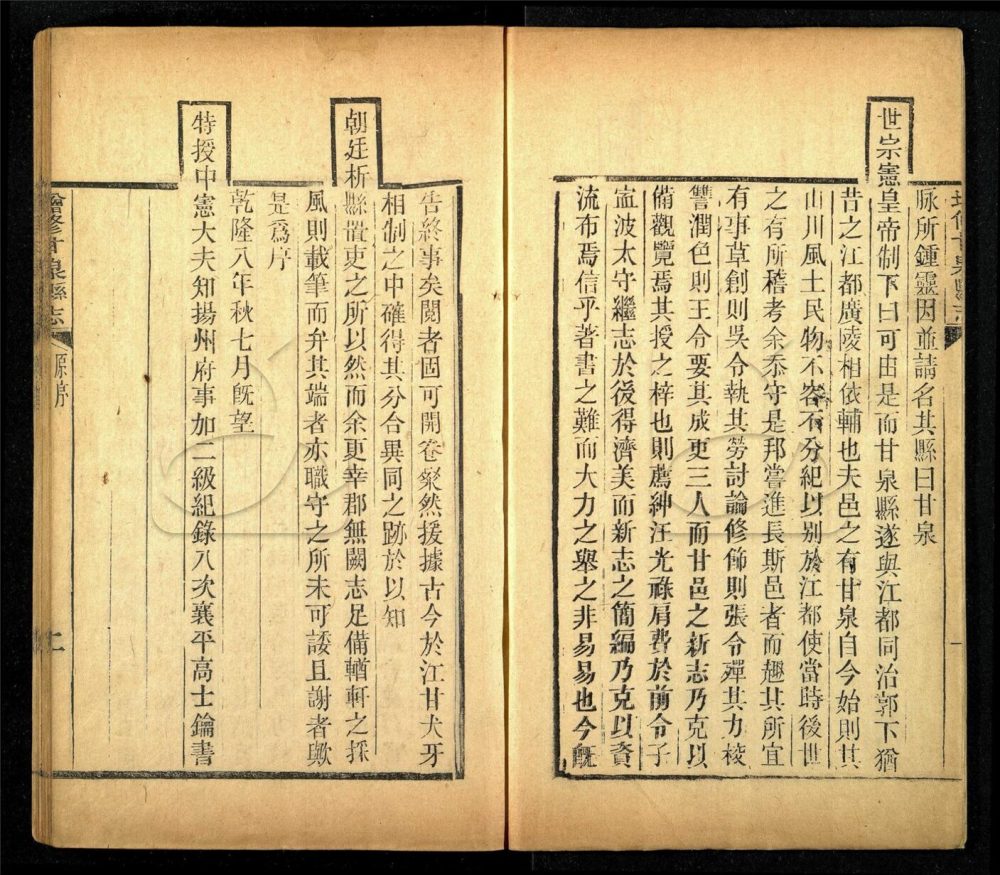 脉所鍾靈因並請名其縣曰甘泉
世宗憲皇帝制下曰可由是而甘泉縣遂與江都同治郭下猶
昔之江都廣陵相依輔也夫邑之有甘泉自今始則其
山川風土民物不容不分紀以别於江都使當時後世
之有所稽考余忝守是邦嘗進長斯邑者而趣其所宜
有事草創則吳令執其勞討論修飾則張令殫其力棱
讐潤色則王令要其成更三人而甘邑之新志乃克以
備觀覽焉其授之梓也則薦紳汪光祿肩費於前令子
寍波太守繼志於後得濟美而新志之簡編乃克以資
流布焉信乎著書之難而大力之舉之非易易也今旣
一
告終事矣閱者固可開卷粲然援據古今於江甘犬牙
相制之中確得其分合異同之跡於以知
朝廷析縣置吏之所以然而余更幸郡無闕志足備輶軒之採
風則載筆而弁其端者亦職守之所未可諉且謝者歟
是爲序
乾隆八年秋七月旣望
特授中憲大夫知揚州府事加二級紀錄八次襄平高士鑰書
增修甘泉縣志
原序
二